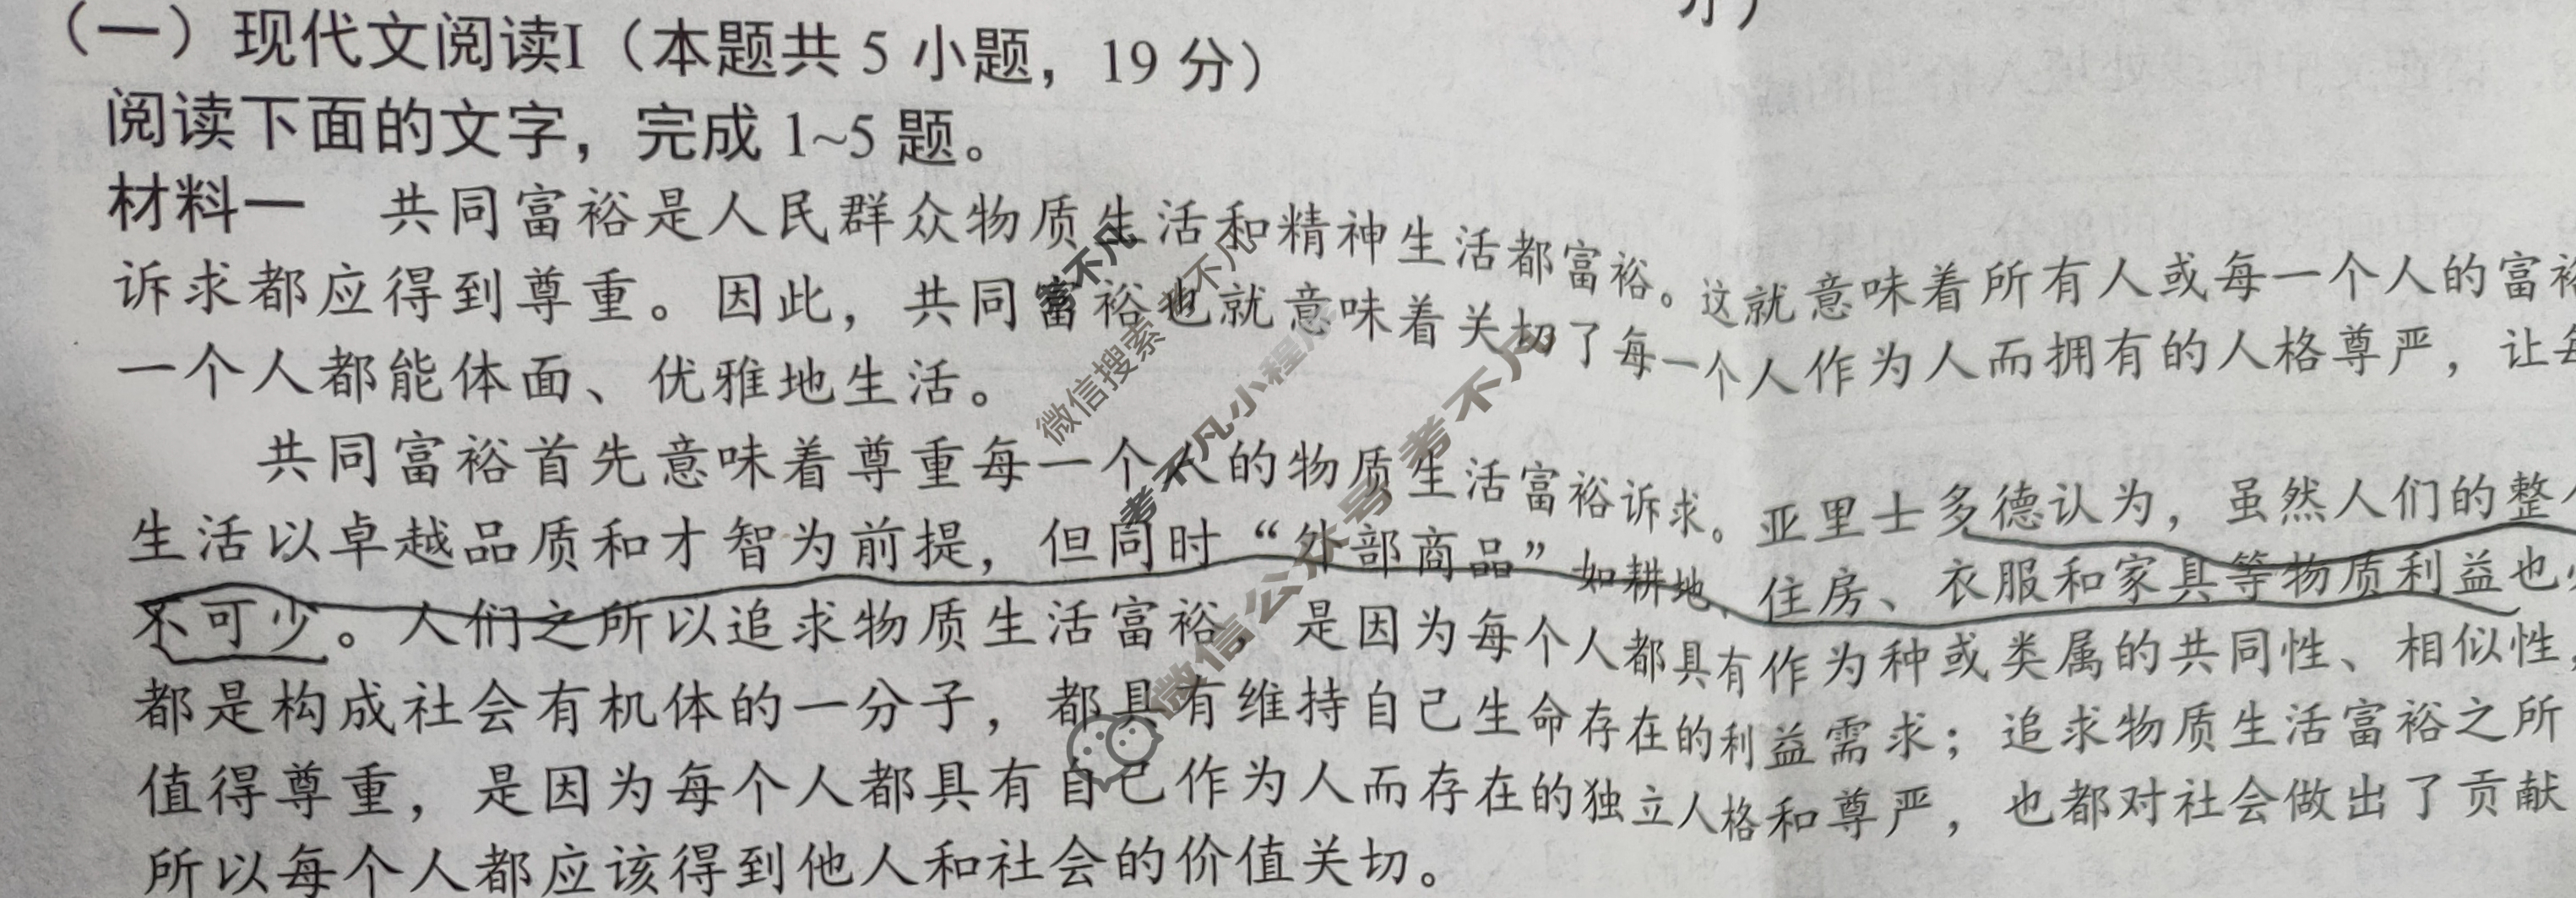 （一）现代文阅读I（本题共 5 小题，19 分）
阅读下面的文字，完成 1~5 题。
材料一 共同富裕是人民群众物质生活和精神生活都富裕。这就意味着所有人或每一个人的富裕
诉求都应得到尊重。因此，共同富裕也就意味着关切了每一个人作为人而拥有的人格尊严，让每
一个人都能体面、优雅地生活。
共同富裕首先意味着尊重每一个人的物质生活富裕诉求。亚里士多德认为，虽然人们的整个
生活以卓越品质和才智为前提，但同时“外部商品”如耕地、住房、衣服和家具等物质利益也必
不可少。人们之所以追求物质生活富裕，是因为每个人都具有作为种或类属的共同性、相似性，
都是构成社会有机体的一分子，都具有维持自己生命存在的利益需求；追求物质生活富裕之所
值得尊重，是因为每个人都具有自己作为人而存在的独立人格和尊严，也都对社会做出了贡献
所以每个人都应该得到他人和社会的价值关切。
微信搜索
考不凡小程序
微信公众号 考不凡